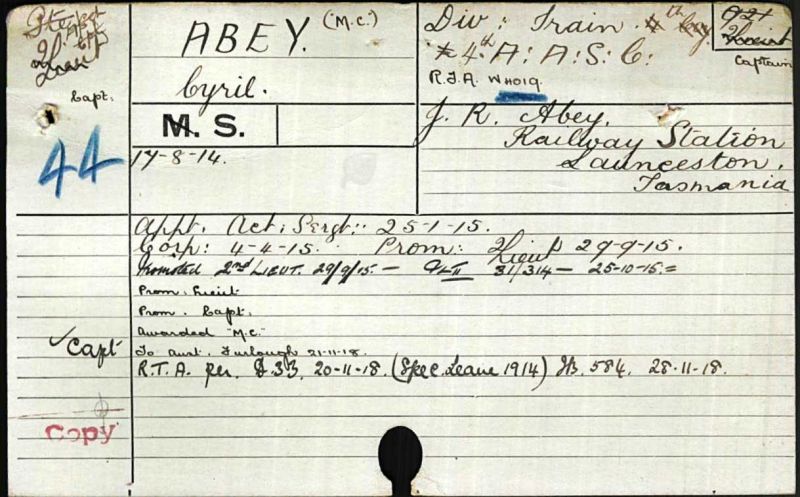 Pte
Lieut
Capt.
ABEY. (M.C.)
Cyril.
Div: Train.
4th A: A: S: C:
R.F.A. WHO19
Captain
M. S.
44
17-8-14.
J. R. Abey,
Railway Station
Launceston,
Tasmania
Appt. Act: Sergt: 25-1-15.
Corp: 4-4-15. Prom: 2/Lieut 29-9-15.
Promoted 2nd LIEUT. 29/9/15. — 31/314 — 25-10-15. =
Prom. Lieut
Prom. Capt.
Awarded "M.C."
Capt
To Aust. Furlough 21-11-18.
R.T.A. per. D.33. 20-11-18. (Spec. Leave 1914) 584. 28-11-18.
Copy